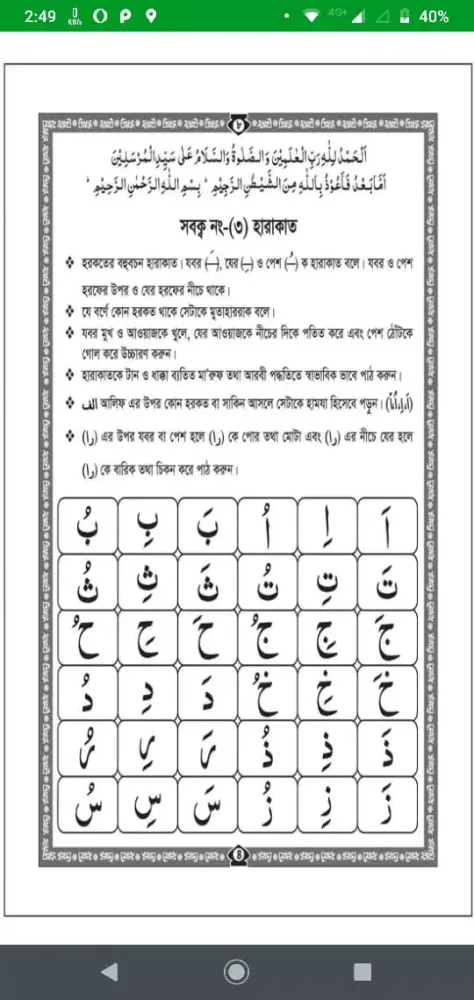 2:49 0 KB/s 4G+ 40%
৮
اَلْحَمْدُ لِلّٰهِ رَبِّ الْعٰلَمِيْنَ وَالصَّلٰوةُ وَالسَّلَامُ عَلٰى سَيِّدِ الْمُرْسَلِيْنَ
اَمَّا بَعْدُ فَاَعُوْذُ بِاللّٰهِ مِنَ الشَّيْطٰنِ الرَّجِيْمِ ؕ بِسْمِ اللّٰهِ الرَّحْمٰنِ الرَّحِيْمِ ؕ
সবক্ব নং-(৩) হারাকাত
❖ হরকতের বহুবচন হারাকাত। যবর (ـَ), যের (ـِ) ও পেশ (ـُ) ক হারাকাত বলে। যবর ও পেশ
হরফের উপর ও যের হরফের নীচে থাকে।
❖ যে বর্ণে কোন হরকত থাকে সেটাকে মুতাহাররাক বলে।
❖ যবর মুখ ও আওয়াজকে খুলে, যের আওয়াজকে নীচের দিকে পতিত করে এবং পেশ ঠোঁটকে
গোল করে উচ্চারণ করুন।
❖ হারাকাতকে টান ও ধাক্কা ব্যতিত মা'রুফ তথা আরবী পদ্ধতিতে স্বাভাবিক ভাবে পাঠ করুন।
❖ الف আলিফ এর উপর কোন হরকত বা সাকিন আসলে সেটাকে হামযা হিসেবে পড়ুন।
❖ (را) এর উপর যবর বা পেশ হলে (را) কে পোর তথা মোটা এবং (را) এর নীচে যের হলে
(را) কে বারিক তথা চিকন করে পাঠ করুন।
اَ اِ اُ بَ بِ بُ
تَ تِ تُ ثَ ثِ ثُ
جَ جِ جُ حَ حِ حُ
خَ خِ خُ دَ دِ دُ
ذَ ذِ ذُ رَ رِ رُ
زَ زِ زُ سَ سِ سُ